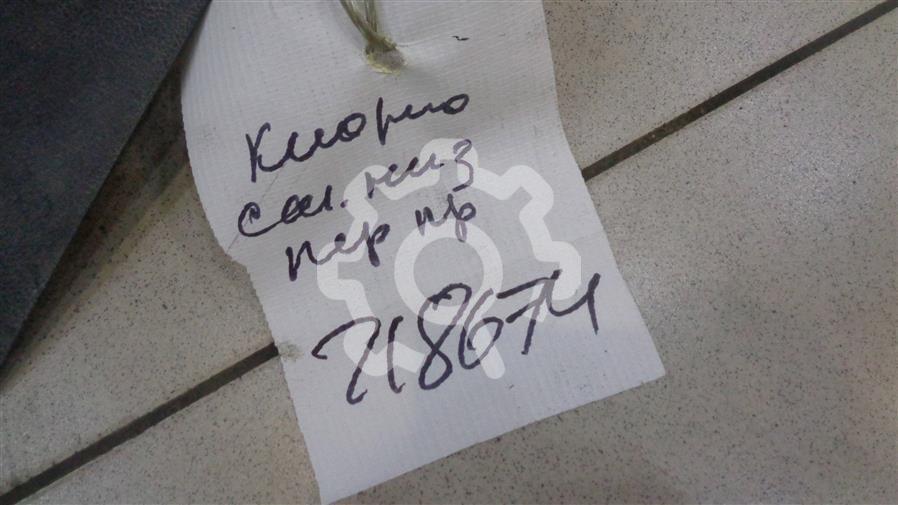 Киорио
сал. низ
пер пр
218674